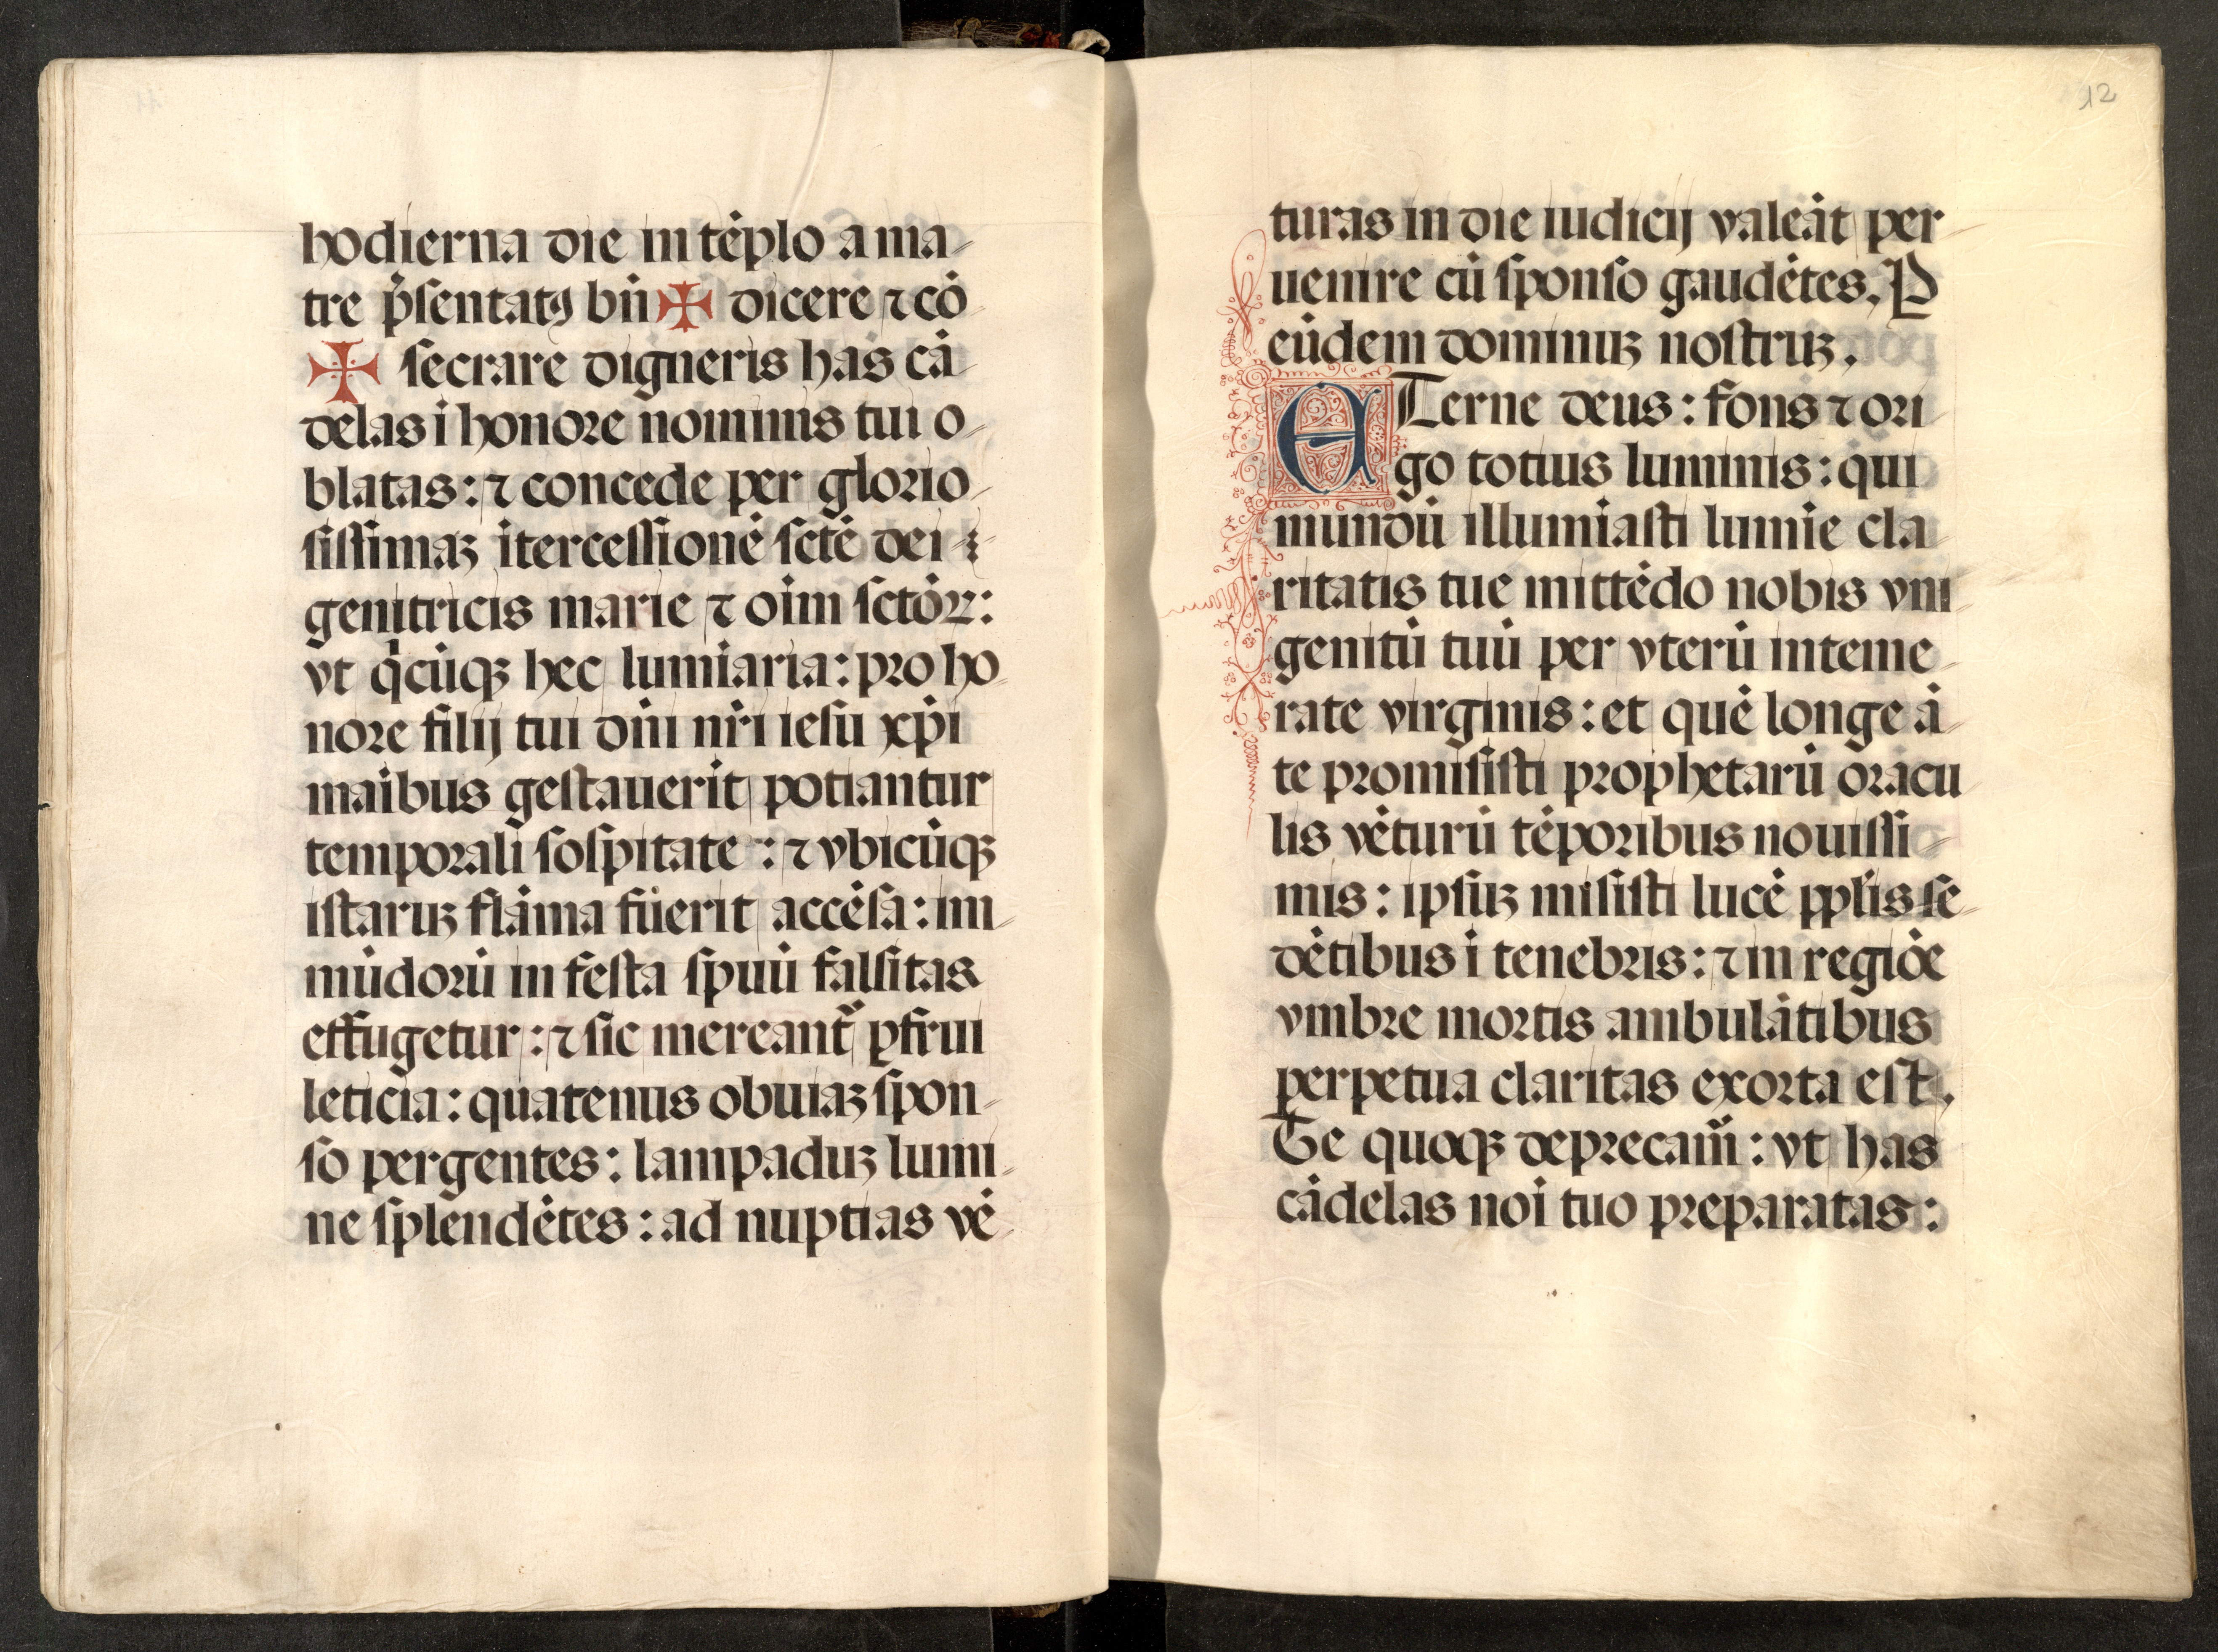 hodierna die in tēplo a ma-
tre p̄sentatꝰ bn̄ ✠ dicere ⁊ cō-
✠ secrare digneris has cā-
delas ī honore nominis tui o-
blatas: ⁊ concede per glorio-
sissimaꝫ ītercessionē sctē dei
genitricis marie ⁊ oīm sctōꝝ:
vt q̄cūqꝫ hec lumīaria: pro ho-
nore filij tui dn̄i nr̄i iesu xp̄i
māibus gestauerīt potiantur
temporali sospitate: ⁊ vbicūqꝫ
istaruꝫ flāma fuerit accēsa: im-
mūdorū infesta spuū falsitas
effugetur: ⁊ sic mereant̄ ꝑfrui
leticia: quatenus obuiaꝫ spon-
so pergentes: lampaduꝫ lumi-
ne splendētes: ad nuptias vē-
12
turas in die iudicij valeāt per-
uenire cū sponso gaudētes. P
eūdem dominuꝫ nostruꝫ.
ETerne deus: fons ⁊ ori-
go totius luminis: qui
mundū illumīasti lumīe cla-
ritatis tue mittēdo nobis vni-
genitū tuū per vterū inteme-
rate virginis: et quē longe ā-
te promisisti prophetarū oracu-
lis vēturū tēporibus nouissi-
mis: ipsuꝫ misisti lucē pplīs se-
dētibus ī tenebris: ⁊ in regiōe
vmbre mortis ambulātibus
perpetua claritas exorta est.
Te quoqꝫ deprecam̄: vt has
cādelas noī tuo preparatas: